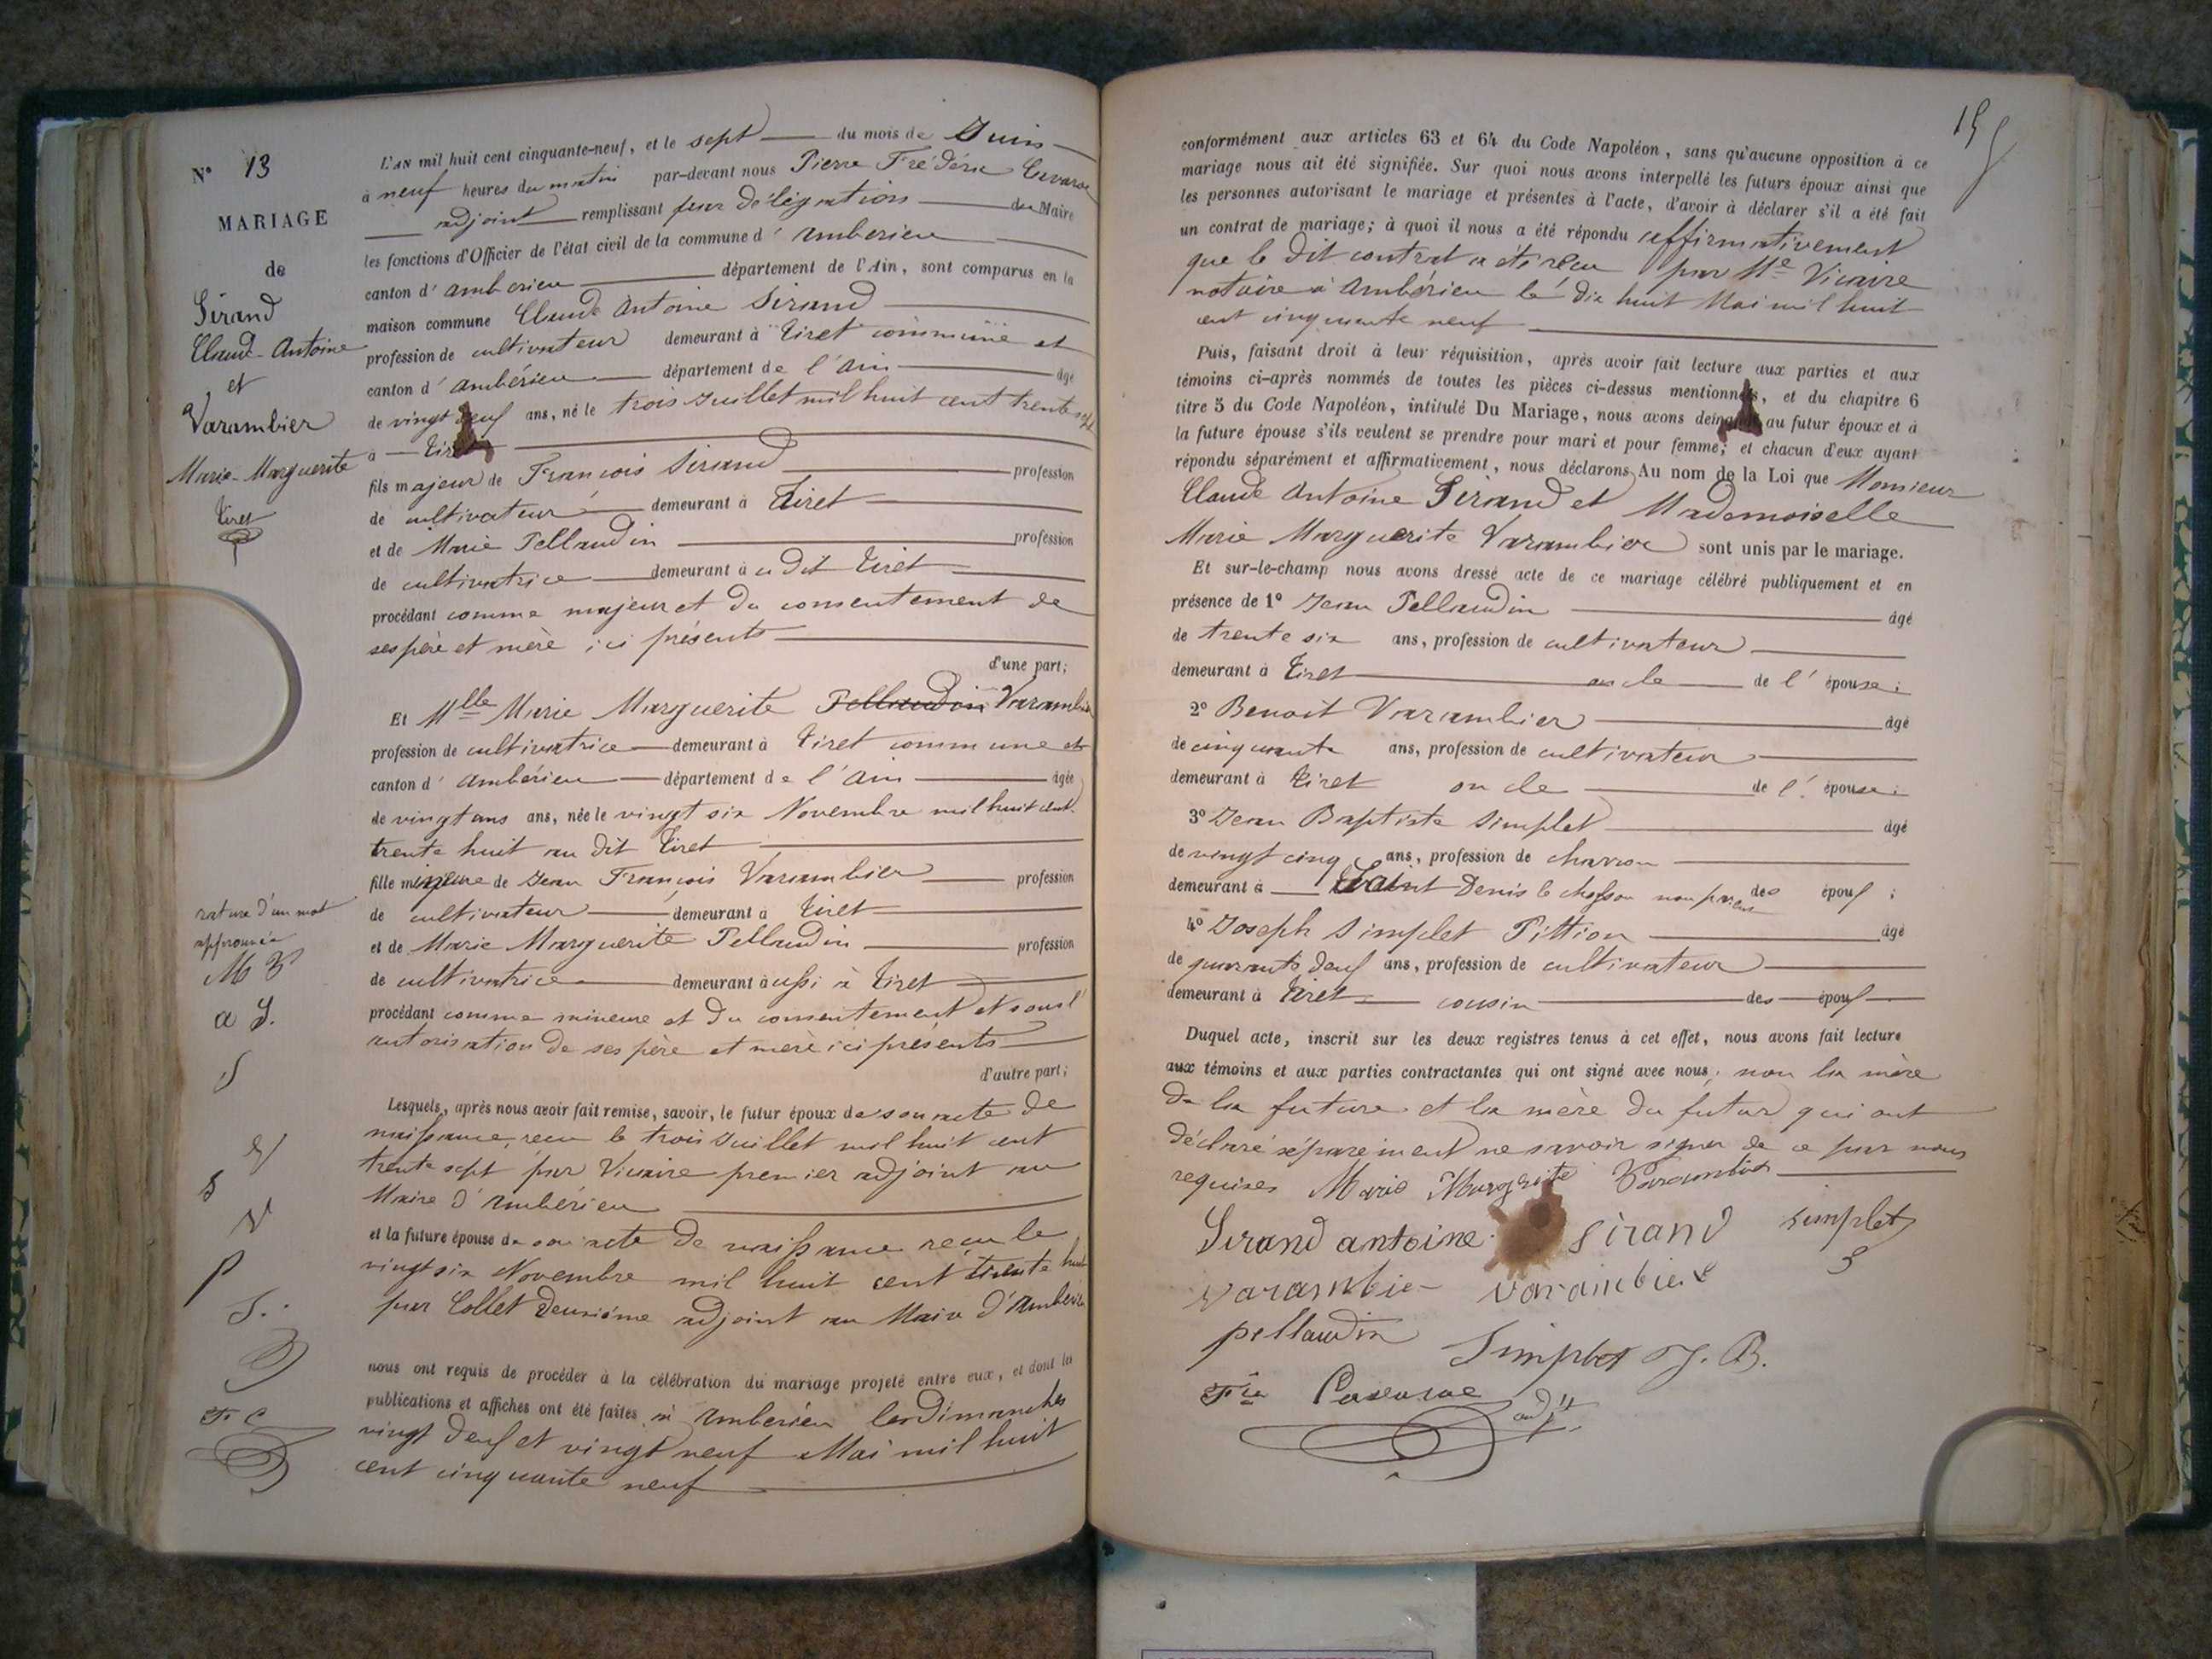 N° 13
MARIAGE
de
Sirand
Claude-Antoine
et
Varambier
Marie-Marguerite
Tiret
rature d'un mot
approuvée
M V
a S.
S
V
S
V
p
S.
F C
L'AN mil huit cent cinquante-neuf, et le sept du mois de Juin
à neuf heures du matin par-devant nous Pierre Frédéric
adjoint remplissant par délégation du Maire
les fonctions d'Officier de l'état civil de la commune d' Amberieu
canton d' amberieu département de l'Ain, sont comparus en la
maison commune Claude Antoine Sirand
profession de cultivateur demeurant à Tiret commune et
canton d' ambérieu département de l'Ain âgé
de vingt ans, né le trois Juillet mil huit cent trente sept
à Tiret
fils majeur de François Sirand profession
de cultivateur demeurant à Tiret
et de Marie Pellaudin profession
de cultivatrice demeurant à ce dit Tiret
procédant comme majeur et du consentement de
ses père et mère ici présents
d'une part;
Et Mlle Marie Marguerite Pellaudin Varambier
profession de cultivatrice demeurant à Tiret commune et
canton d' ambérieu département de l'Ain âgée
de vingt ans ans, née le vingt six Novembre mil huit cent
trente huit au dit Tiret
fille mineure de Jean François Varambier profession
de cultivateur demeurant à Tiret
et de Marie Marguerite Pellaudin profession
de cultivatrice demeurant aussi à Tiret
procédant comme mineure et du consentement et sous l'
autorisation de ses père et mère ici présents
d'autre part;
Lesquels, après nous avoir fait remise, savoir, le futur époux de son acte de
naissance, reçu le trois Juillet mil huit cent
trente sept par Vicaire premier adjoint au
Maire d'ambérieu
et la future épouse de son acte de naissance reçu le
vingt six Novembre mil huit cent trente huit
par Collet deuxième adjoint au Maire d'Ambérieu
nous ont requis de procéder à la célébration du mariage projeté entre eux, et dont les
publications et affiches ont été faites à Ambérieu les Dimanches
vingt deux et vingt neuf Mai mil huit
cent cinquante neuf
15
conformément aux articles 63 et 64 du Code Napoléon, sans qu'aucune opposition à ce
mariage nous ait été signifiée. Sur quoi nous avons interpellé les futurs époux ainsi que
les personnes autorisant le mariage et présentes à l'acte, d'avoir à déclarer s'il a été fait
un contrat de mariage; à quoi il nous a été répondu affirmativement
que le dit contrat a été reçu par Me Vicaire
notaire à Ambérieu le dix huit Mai mil huit
cent cinquante neuf
Puis, faisant droit à leur réquisition, après avoir fait lecture aux parties et aux
témoins ci-après nommés de toutes les pièces ci-dessus mentionnées, et du chapitre 6
titre 5 du Code Napoléon, intitulé Du Mariage, nous avons demandé au futur époux et à
la future épouse s'ils veulent se prendre pour mari et pour femme; et chacun d'eux ayant
répondu séparément et affirmativement, nous déclarons Au nom de la Loi que Monsieur
Claude Antoine Sirand et Mademoiselle
Marie Marguerite Varambier sont unis par le mariage.
Et sur-le-champ nous avons dressé acte de ce mariage célébré publiquement et en
présence de 1° Jean Pellaudin âgé
de trente six ans, profession de cultivateur
demeurant à Tiret oncle de l'épouse;
2° Benoit Varambier âgé
de cinquante ans, profession de cultivateur
demeurant à Tiret oncle de l'épouse;
3° Jean Baptiste Simplet âgé
de vingt cinq ans, profession de charron
demeurant à Saint Denis le chosson non parent des époux;
4° Joseph Simplet Pittion âgé
de quarante deux ans, profession de cultivateur
demeurant à Tiret cousin des époux
Duquel acte, inscrit sur les deux registres tenus à cet effet, nous avons fait lecture
aux témoins et aux parties contractantes qui ont signé avec nous, non la mère
de la future et la mère du futur qui ont
déclaré séparément ne savoir signer de ce par nous
requises Marie Margrite Varambier
Sirand antoine Sirand simplet
varambier varambier
pellaudin Simplet J. B.
adjt